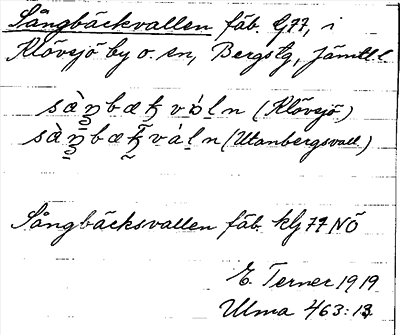 Sångbäckvallen fäb. G77, i
Klövsjö by o. sn, Bergs tg, Jämtl. l.
(Klövsjö)
(Utanbergsvall.)
Sångbäcksvallen fäb. klg 77 NÖ
E. Terner 1919
Ulma 463:13